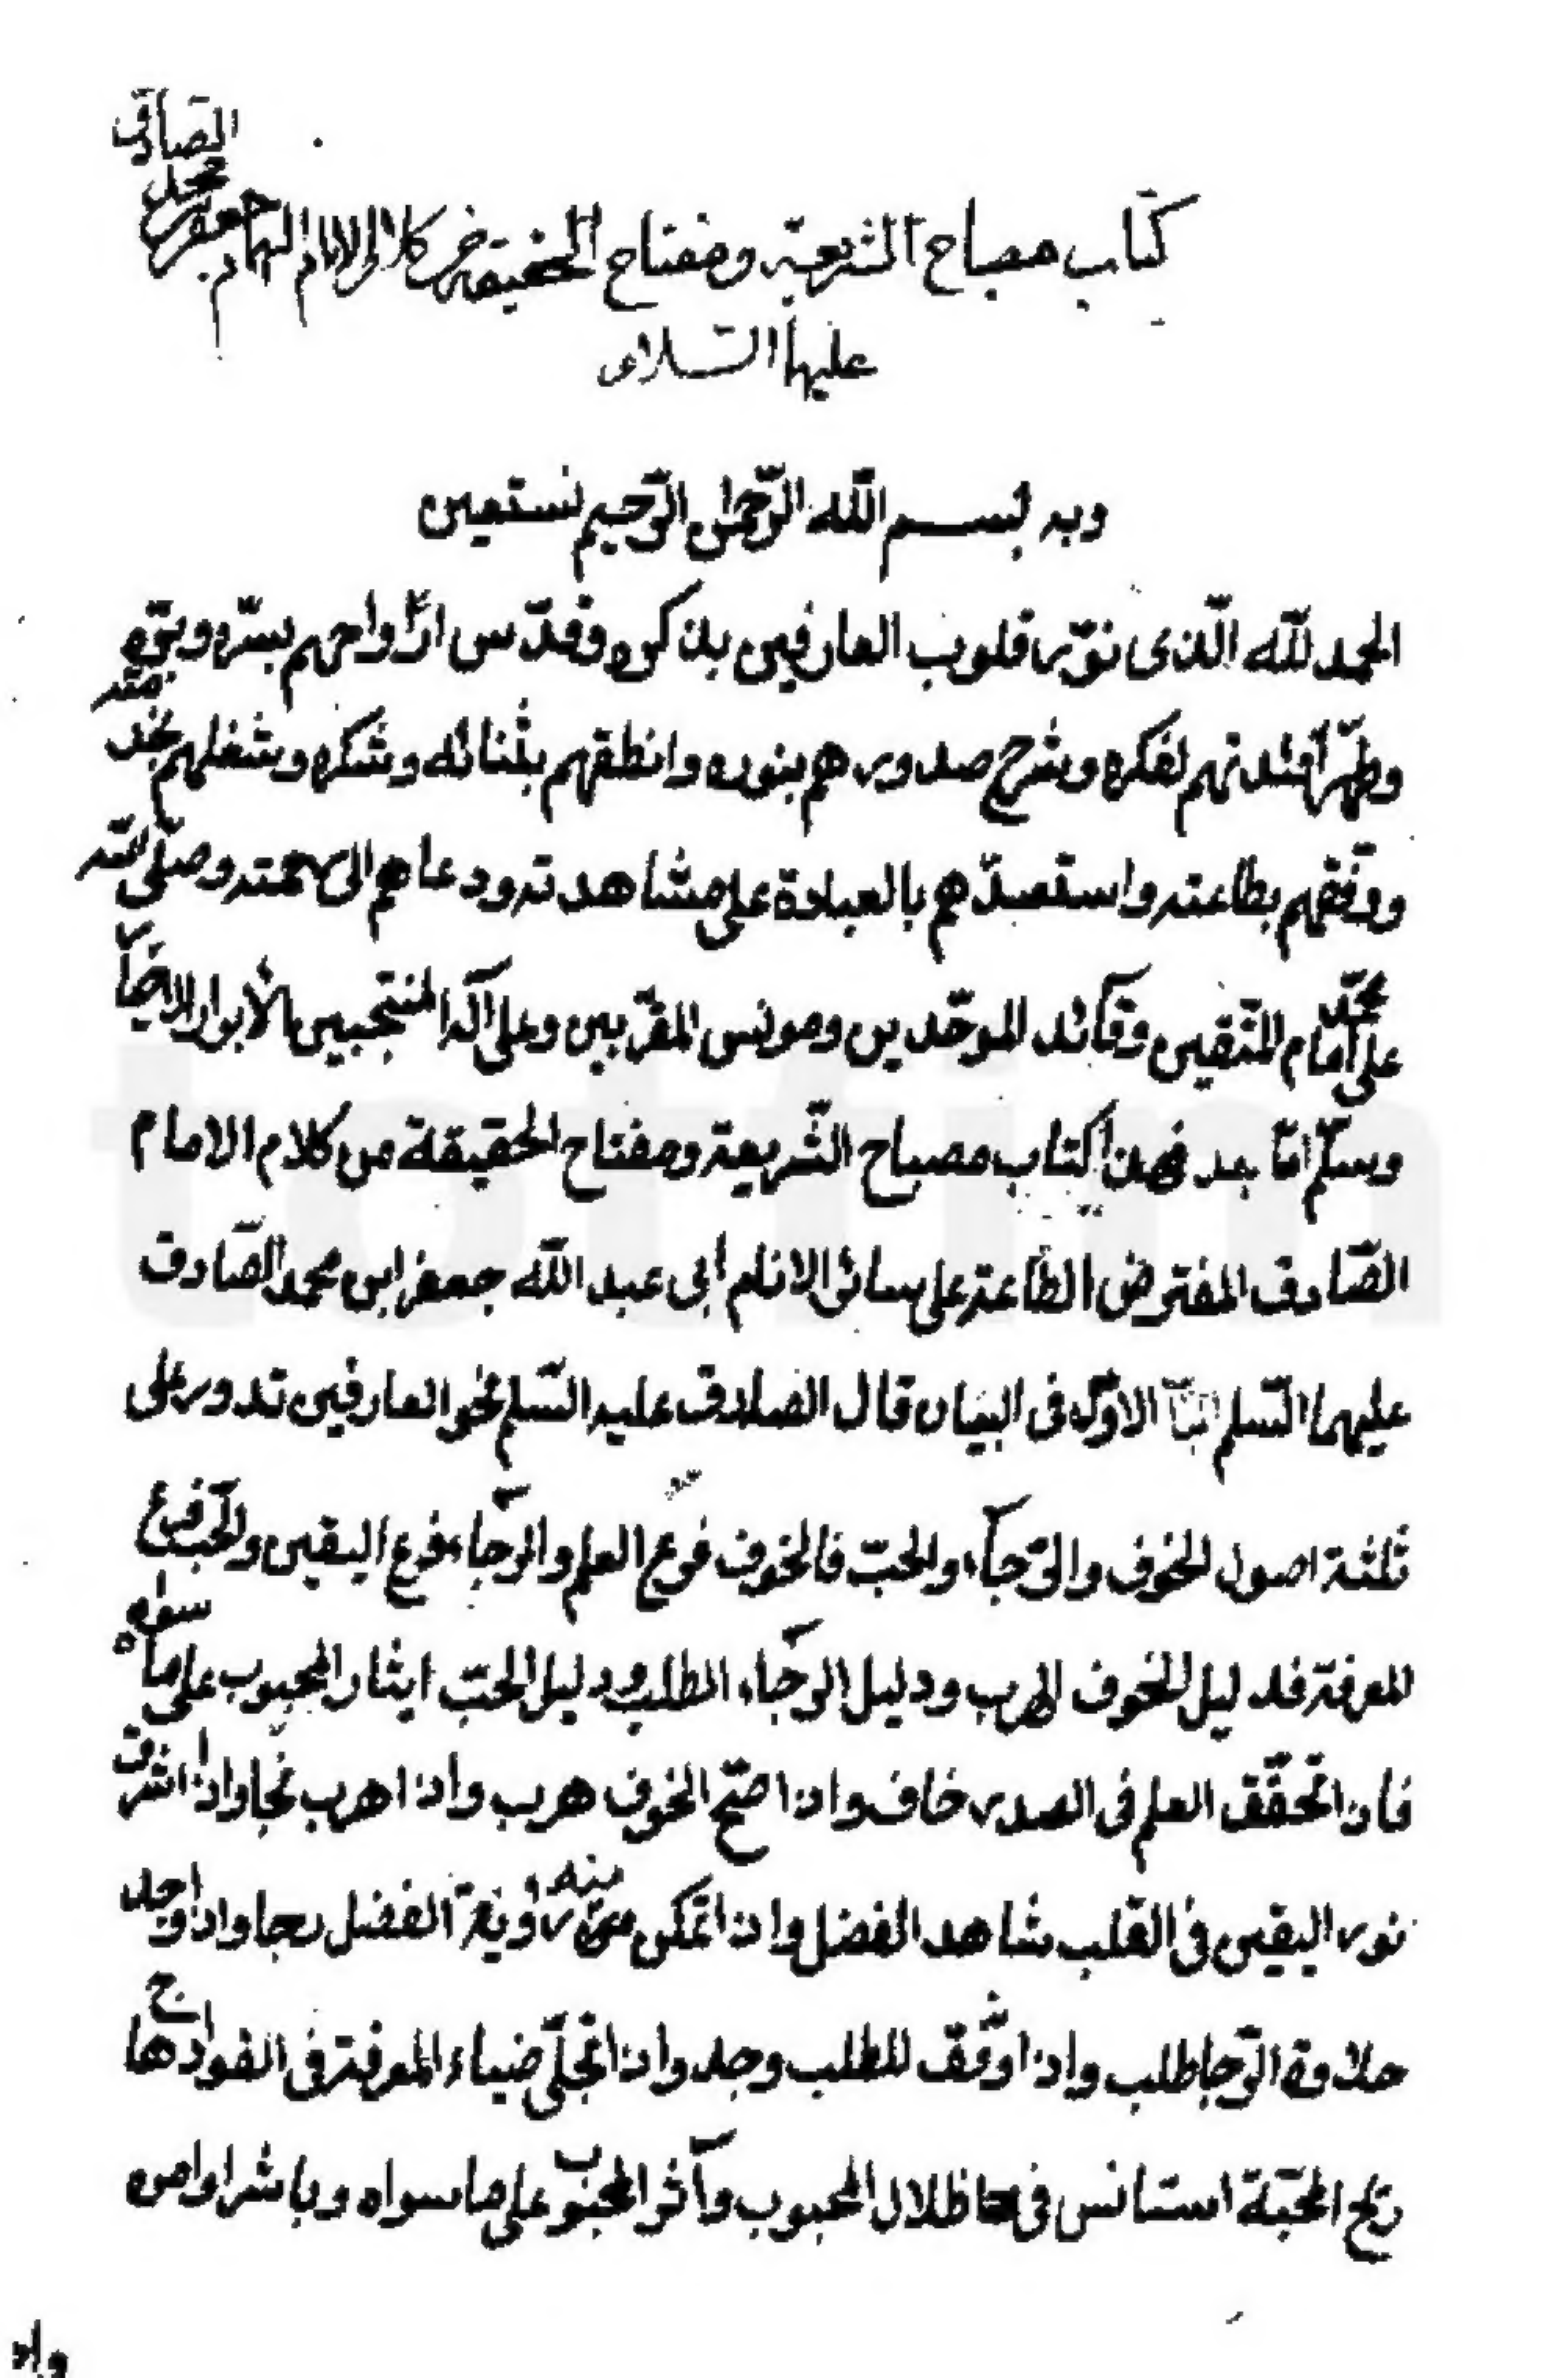 كتاب مصباح الشريعة ومفتاح الحقيقة من كلام الامام الهمام جعفر بن محمد الصادق
عليهما السلام
وبه بســم الله الرّحمن الرّحيم نستعين
الحمد لله الّذى نوّر قلوب العارفين بذكره وقدّس ارواحهم بسرّه وبرّه
وطهّر أفئدتهم لفكره وشرح صدورهم بنوره وانطقهم بثنائه وشكره وشغلهم بخدمته
ووفّقهم بطاعته واستعبدهم بالعبادة على مشاهدته ودعاهم الى رحمته وصلى الله
على محمّد امام المتّقين وقآئد الموحّدين ومونس المقرّبين وعلى آله المنتجبين الأبرار الاخيار
وسلّم امّا بعد فهذا كتاب مصباح الشّريعة ومفتاح الحقيقة من كلام الامام
الصّادق المفترض الطّاعة على سائر الانام أبى عبد الله جعفر ابن محمد الصّادق
عليهما السّلم الباب الاوّل فى البيان قال الصادق عليه السّلم نحو العارفين تدور على
ثلثة اصول الخوف والرّجآء والحبّ فالخوف فرع العلم والرجآء فرع اليقين والحبّ فرع
المعرفة فدليل الخوف الهرب ودليل الرجآء الطلب ودليل الحبّ ايثار المحبوب على ما سواه
فاذا تحقّق العلم فى الصدر خاف واذا صحّ الخوف هرب واذا هرب نجا واذا اشرق
نور اليقين فى القلب شاهد الفضل واذا تمكن منه رؤية الفضل رجا واذا وجد
حلاوة الرّجا طلب واذا وفّق للطلب وجد واذا تجلّى ضياء المعرفة فى الفواد هاج
ريح المحبّة استانس فى ظلال المحبوب وآثر المحبوب على ما سواه وباشر اوامره